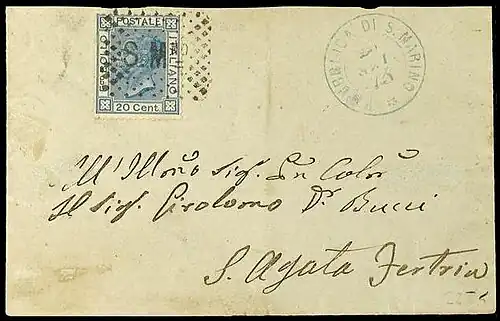 FRANCO BOLLO
POSTALE
ITALIANO
20 Cent.
S M
REPUBBLICA DI S. MARINO
All'Illmo Sig. Sig. Colmo
Il Sig. Girolamo Dr. Bucci
S. Agata Feltria